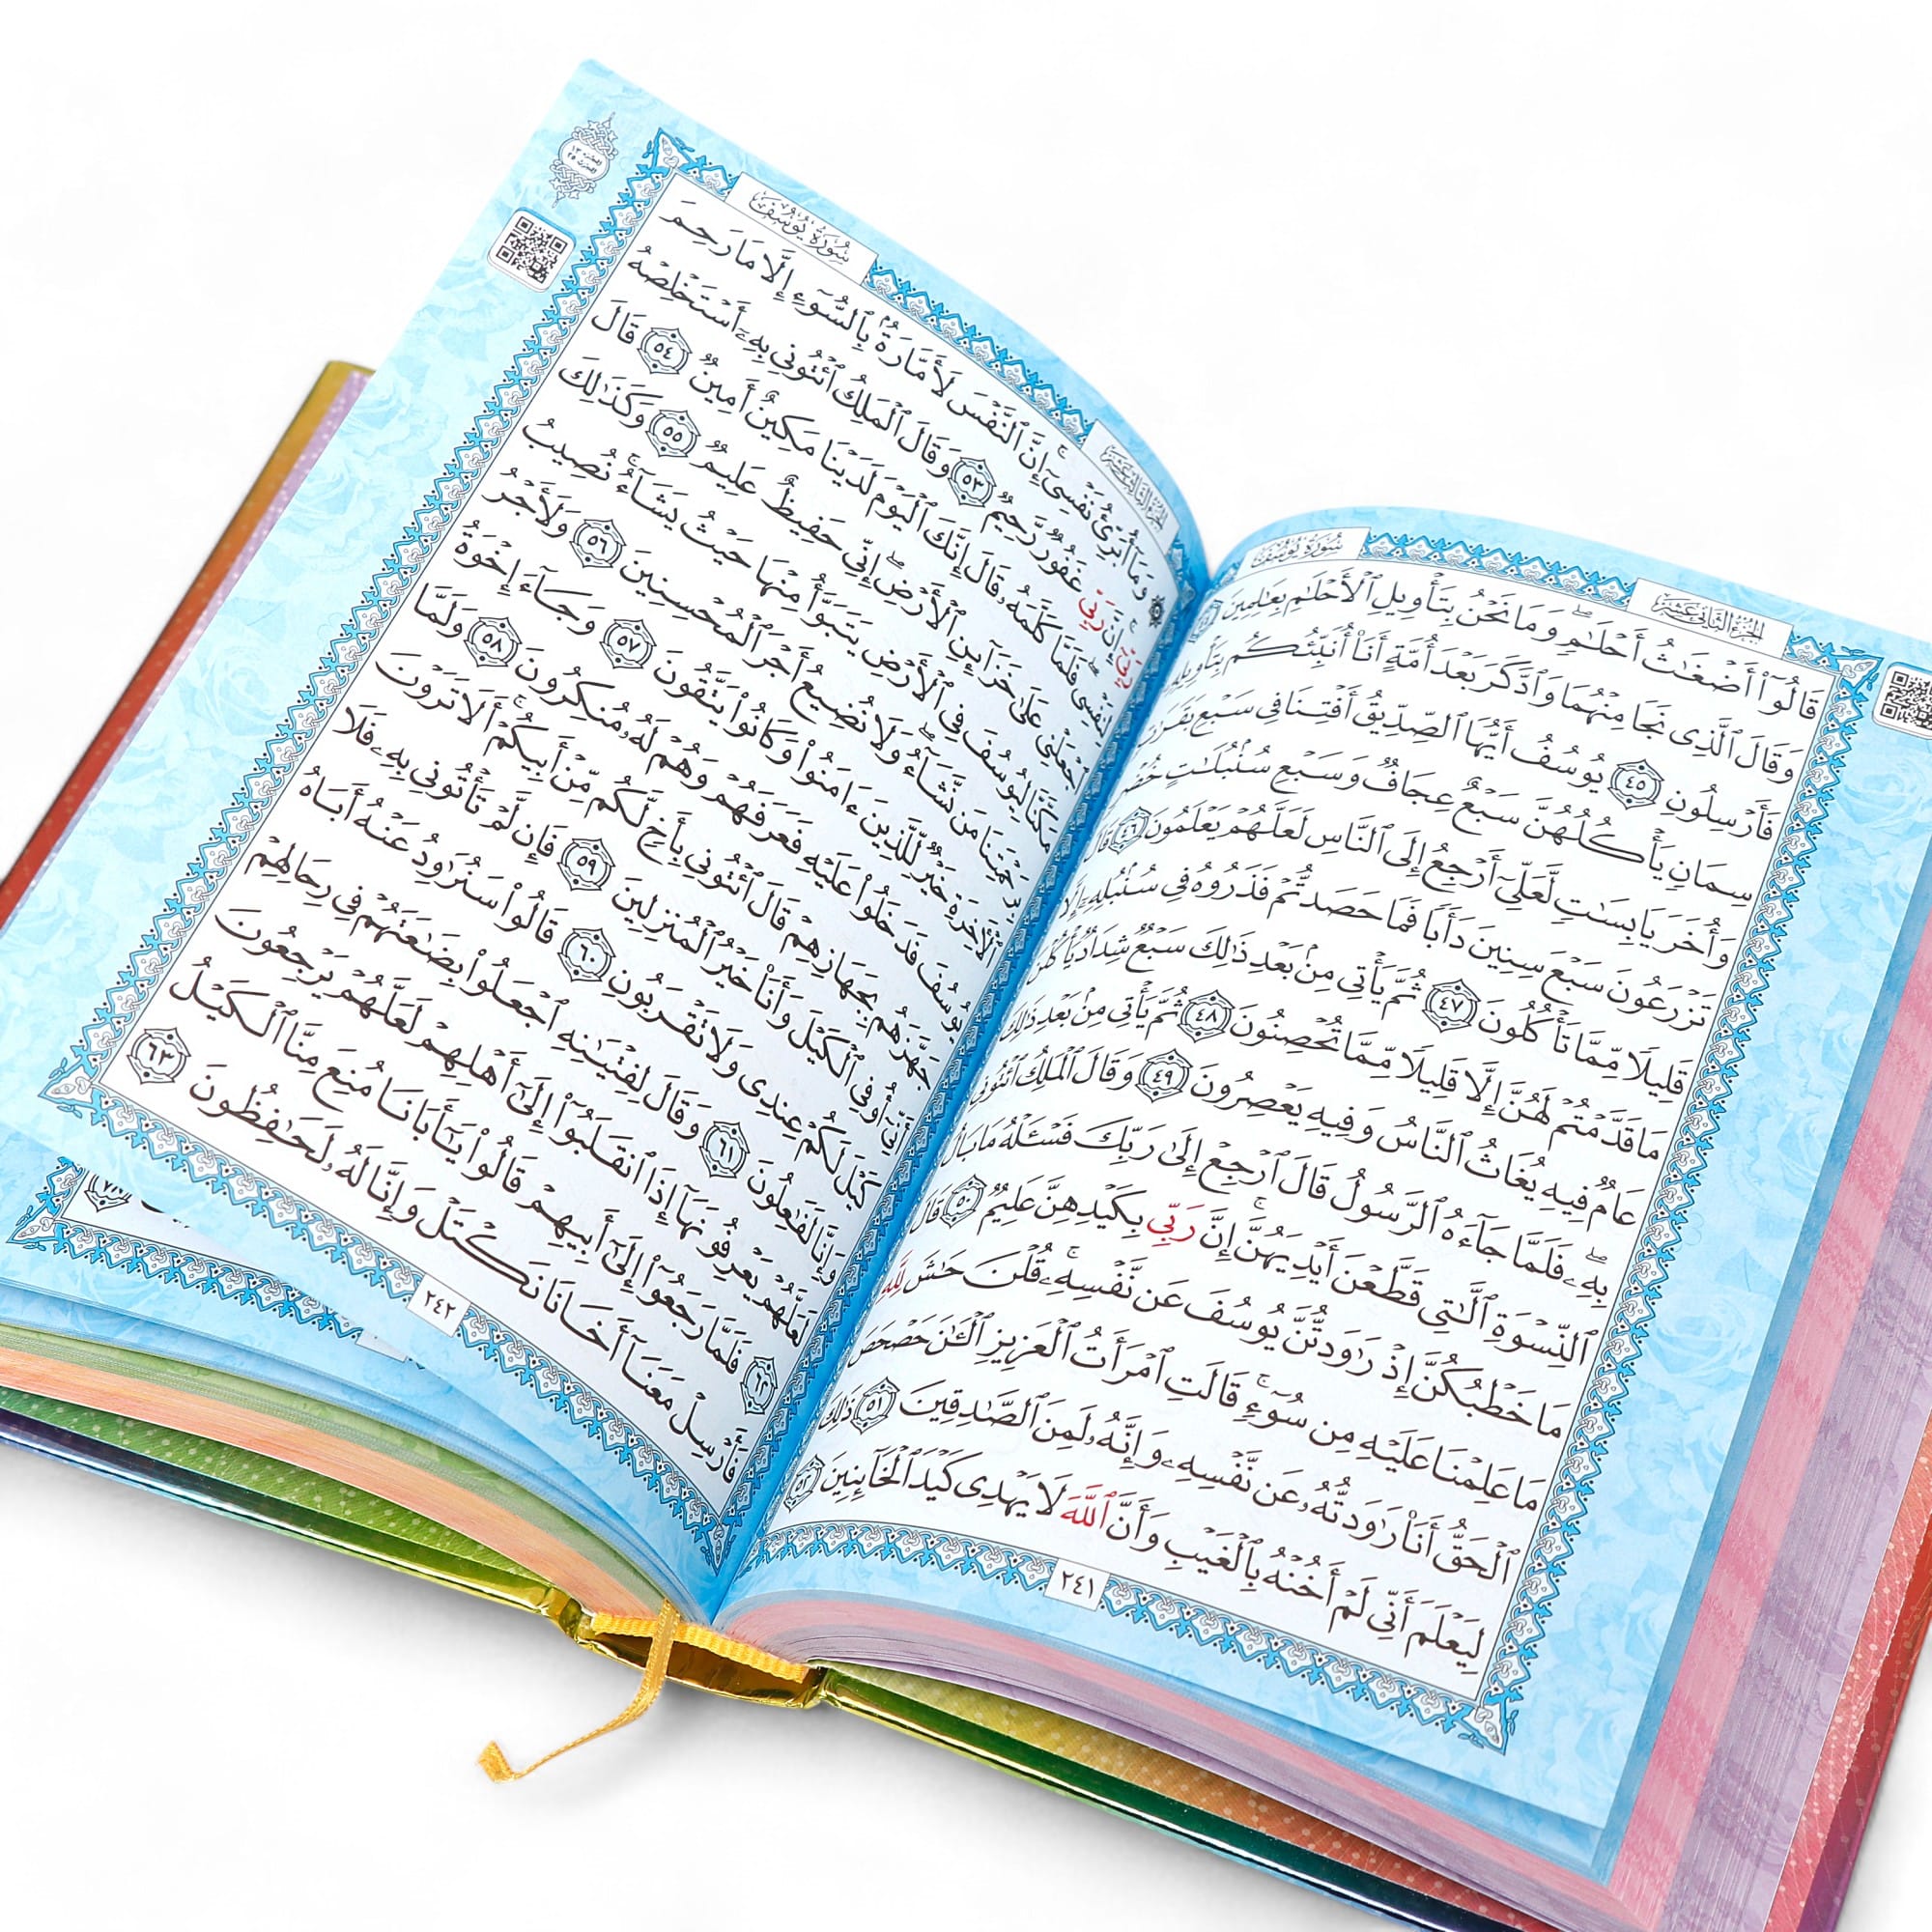 سُورَةُ يُوسُفَ
الجُزْءُ الثَّانِي عَشَرَ
قَالُوٓا۟ أَضْغَٰثُ أَحْلَٰمٍ ۖ وَمَا نَحْنُ بِتَأْوِيلِ ٱلْأَحْلَٰمِ بِعَٰلِمِينَ
وَقَالَ ٱلَّذِى نَجَا مِنْهُمَا وَٱدَّكَرَ بَعْدَ أُمَّةٍ أَنَا۠ أُنَبِّئُكُم بِتَأْوِيلِهِۦ
فَأَرْسِلُونِ ٤٥ يُوسُفُ أَيُّهَا ٱلصِّدِّيقُ أَفْتِنَا فِى سَبْعِ بَقَرَٰتٍ
سِمَانٍ يَأْكُلُهُنَّ سَبْعٌ عِجَافٌ وَسَبْعِ سُنۢبُلَٰتٍ خُضْرٍ
وَأُخَرَ يَابِسَٰتٍ لَّعَلِّىٓ أَرْجِعُ إِلَى ٱلنَّاسِ لَعَلَّهُمْ يَعْلَمُونَ ٤٦ قَالَ
تَزْرَعُونَ سَبْعَ سِنِينَ دَأَبًا فَمَا حَصَدتُّمْ فَذَرُوهُ فِى سُنۢبُلِهِۦٓ إِلَّا
قَلِيلًا مِّمَّا تَأْكُلُونَ ٤٧ ثُمَّ يَأْتِى مِنۢ بَعْدِ ذَٰلِكَ سَبْعٌ شِدَادٌ يَأْكُلْنَ
مَا قَدَّمْتُمْ لَهُنَّ إِلَّا قَلِيلًا مِّمَّا تُحْصِنُونَ ٤٨ ثُمَّ يَأْتِى مِنۢ بَعْدِ ذَٰلِكَ
عَامٌ فِيهِ يُغَاثُ ٱلنَّاسُ وَفِيهِ يَعْصِرُونَ ٤٩ وَقَالَ ٱلْمَلِكُ ٱئْتُونِى
بِهِۦ ۖ فَلَمَّا جَآءَهُ ٱلرَّسُولُ قَالَ ٱرْجِعْ إِلَىٰ رَبِّكَ فَسْـَٔلْهُ مَا بَالُ
ٱلنِّسْوَةِ ٱلَّٰتِى قَطَّعْنَ أَيْدِيَهُنَّ ۚ إِنَّ رَبِّى بِكَيْدِهِنَّ عَلِيمٌ ٥٠ قَالَ
مَا خَطْبُكُنَّ إِذْ رَٰوَدتُّنَّ يُوسُفَ عَن نَّفْسِهِۦ ۚ قُلْنَ حَٰشَ لِلَّهِ
مَا عَلِمْنَا عَلَيْهِ مِن سُوٓءٍ ۚ قَالَتِ ٱمْرَأَتُ ٱلْعَزِيزِ ٱلْـَٰٔنَ حَصْحَصَ
ٱلْحَقُّ أَنَا۠ رَٰوَدتُّهُۥ عَن نَّفْسِهِۦ وَإِنَّهُۥ لَمِنَ ٱلصَّٰدِقِينَ ٥١ ذَٰلِكَ
لِيَعْلَمَ أَنِّى لَمْ أَخُنْهُ بِٱلْغَيْبِ وَأَنَّ ٱللَّهَ لَا يَهْدِى كَيْدَ ٱلْخَآئِنِينَ ٥٢
٢٤١
سُورَةُ يُوسُفَ
وَمَآ أُبَرِّئُ نَفْسِىٓ ۚ إِنَّ ٱلنَّفْسَ لَأَمَّارَةٌۢ بِٱلسُّوٓءِ إِلَّا مَا رَحِمَ
رَبِّىٓ ۚ إِنَّ رَبِّى غَفُورٌ رَّحِيمٌ ٥٣ وَقَالَ ٱلْمَلِكُ ٱئْتُونِى بِهِۦٓ أَسْتَخْلِصْهُ
لِنَفْسِى ۖ فَلَمَّا كَلَّمَهُۥ قَالَ إِنَّكَ ٱلْيَوْمَ لَدَيْنَا مَكِينٌ أَمِينٌ ٥٤ قَالَ
ٱجْعَلْنِى عَلَىٰ خَزَآئِنِ ٱلْأَرْضِ ۖ إِنِّى حَفِيظٌ عَلِيمٌ ٥٥ وَكَذَٰلِكَ
مَكَّنَّا لِيُوسُفَ فِى ٱلْأَرْضِ يَتَبَوَّأُ مِنْهَا حَيْثُ يَشَآءُ ۚ نُصِيبُ
بِرَحْمَتِنَا مَن نَّشَآءُ ۖ وَلَا نُضِيعُ أَجْرَ ٱلْمُحْسِنِينَ ٥٦ وَلَأَجْرُ
ٱلْـَٔاخِرَةِ خَيْرٌ لِّلَّذِينَ ءَامَنُوا۟ وَكَانُوا۟ يَتَّقُونَ ٥٧ وَجَآءَ إِخْوَةُ
يُوسُفَ فَدَخَلُوا۟ عَلَيْهِ فَعَرَفَهُمْ وَهُمْ لَهُۥ مُنكِرُونَ ٥٨ وَلَمَّا
جَهَّزَهُم بِجَهَازِهِمْ قَالَ ٱئْتُونِى بِأَخٍ لَّكُم مِّنْ أَبِيكُمْ ۚ أَلَا تَرَوْنَ
أَنِّىٓ أُوفِى ٱلْكَيْلَ وَأَنَا۠ خَيْرُ ٱلْمُنزِلِينَ ٥٩ فَإِن لَّمْ تَأْتُونِى بِهِۦ فَلَا
كَيْلَ لَكُمْ عِندِى وَلَا تَقْرَبُونِ ٦٠ قَالُوا۟ سَنُرَٰوِدُ عَنْهُ أَبَاهُ
وَإِنَّا لَفَٰعِلُونَ ٦١ وَقَالَ لِفِتْيَٰنِهِ ٱجْعَلُوا۟ بِضَٰعَتَهُمْ فِى رِحَالِهِمْ
لَعَلَّهُمْ يَعْرِفُونَهَآ إِذَا ٱنقَلَبُوٓا۟ إِلَىٰٓ أَهْلِهِمْ لَعَلَّهُمْ يَرْجِعُونَ
٦٢ فَلَمَّا رَجَعُوٓا۟ إِلَىٰٓ أَبِيهِمْ قَالُوا۟ يَٰٓأَبَانَا مُنِعَ مِنَّا ٱلْكَيْلُ
فَأَرْسِلْ مَعَنَآ أَخَانَا نَكْتَلْ وَإِنَّا لَهُۥ لَحَٰفِظُونَ ٦٣
٢٤٢